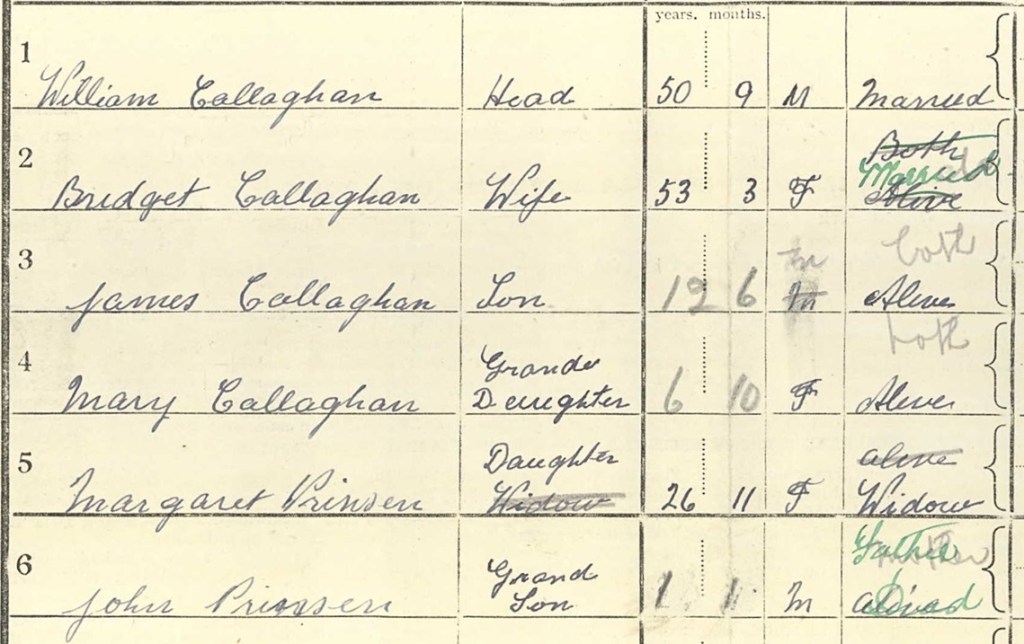 years. months.
1
William Callaghan Head 50 9 M Married
2
Both
Married
Bridget Callaghan Wife 53 3 F Alive
3
both
M
James Callaghan Son 12 6 M Alive
4
both
Grand
Mary Callaghan Daughter 6 10 F Alive
5
Daughter alive
Margaret Prinsen Widow 26 11 F Widow
6
Father
Grand
John Prinsen Son 1 1 M Dead